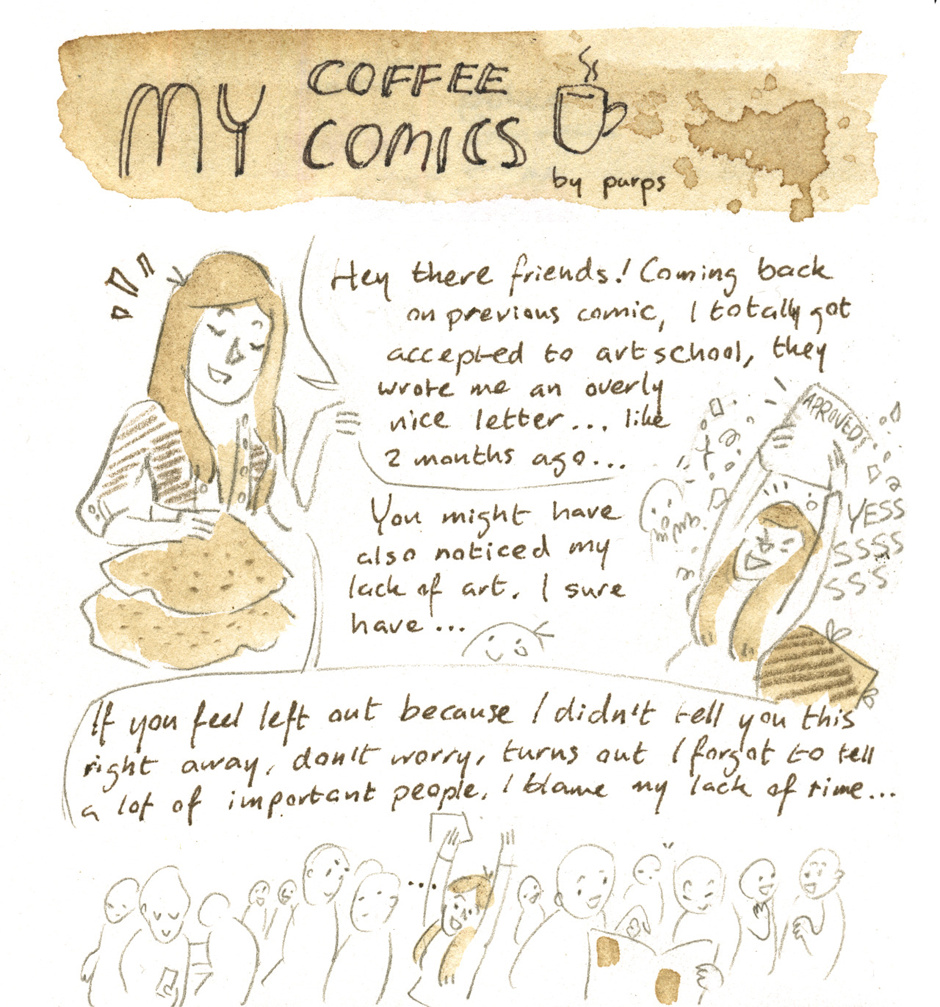 MY COFFEE COMICS
by purps
Hey there friends! Coming back
on previous comic, I totally got
accepted to art school, they
wrote me an overly
nice letter... like
2 months ago...
APROVED!
YESS
SSSS
SSS
You might have
also noticed my
lack of art. I sure
have...
If you feel left out because I didn't tell you this
right away, don't worry, turns out I forgot to tell
a lot of important people. I blame my lack of time...
...